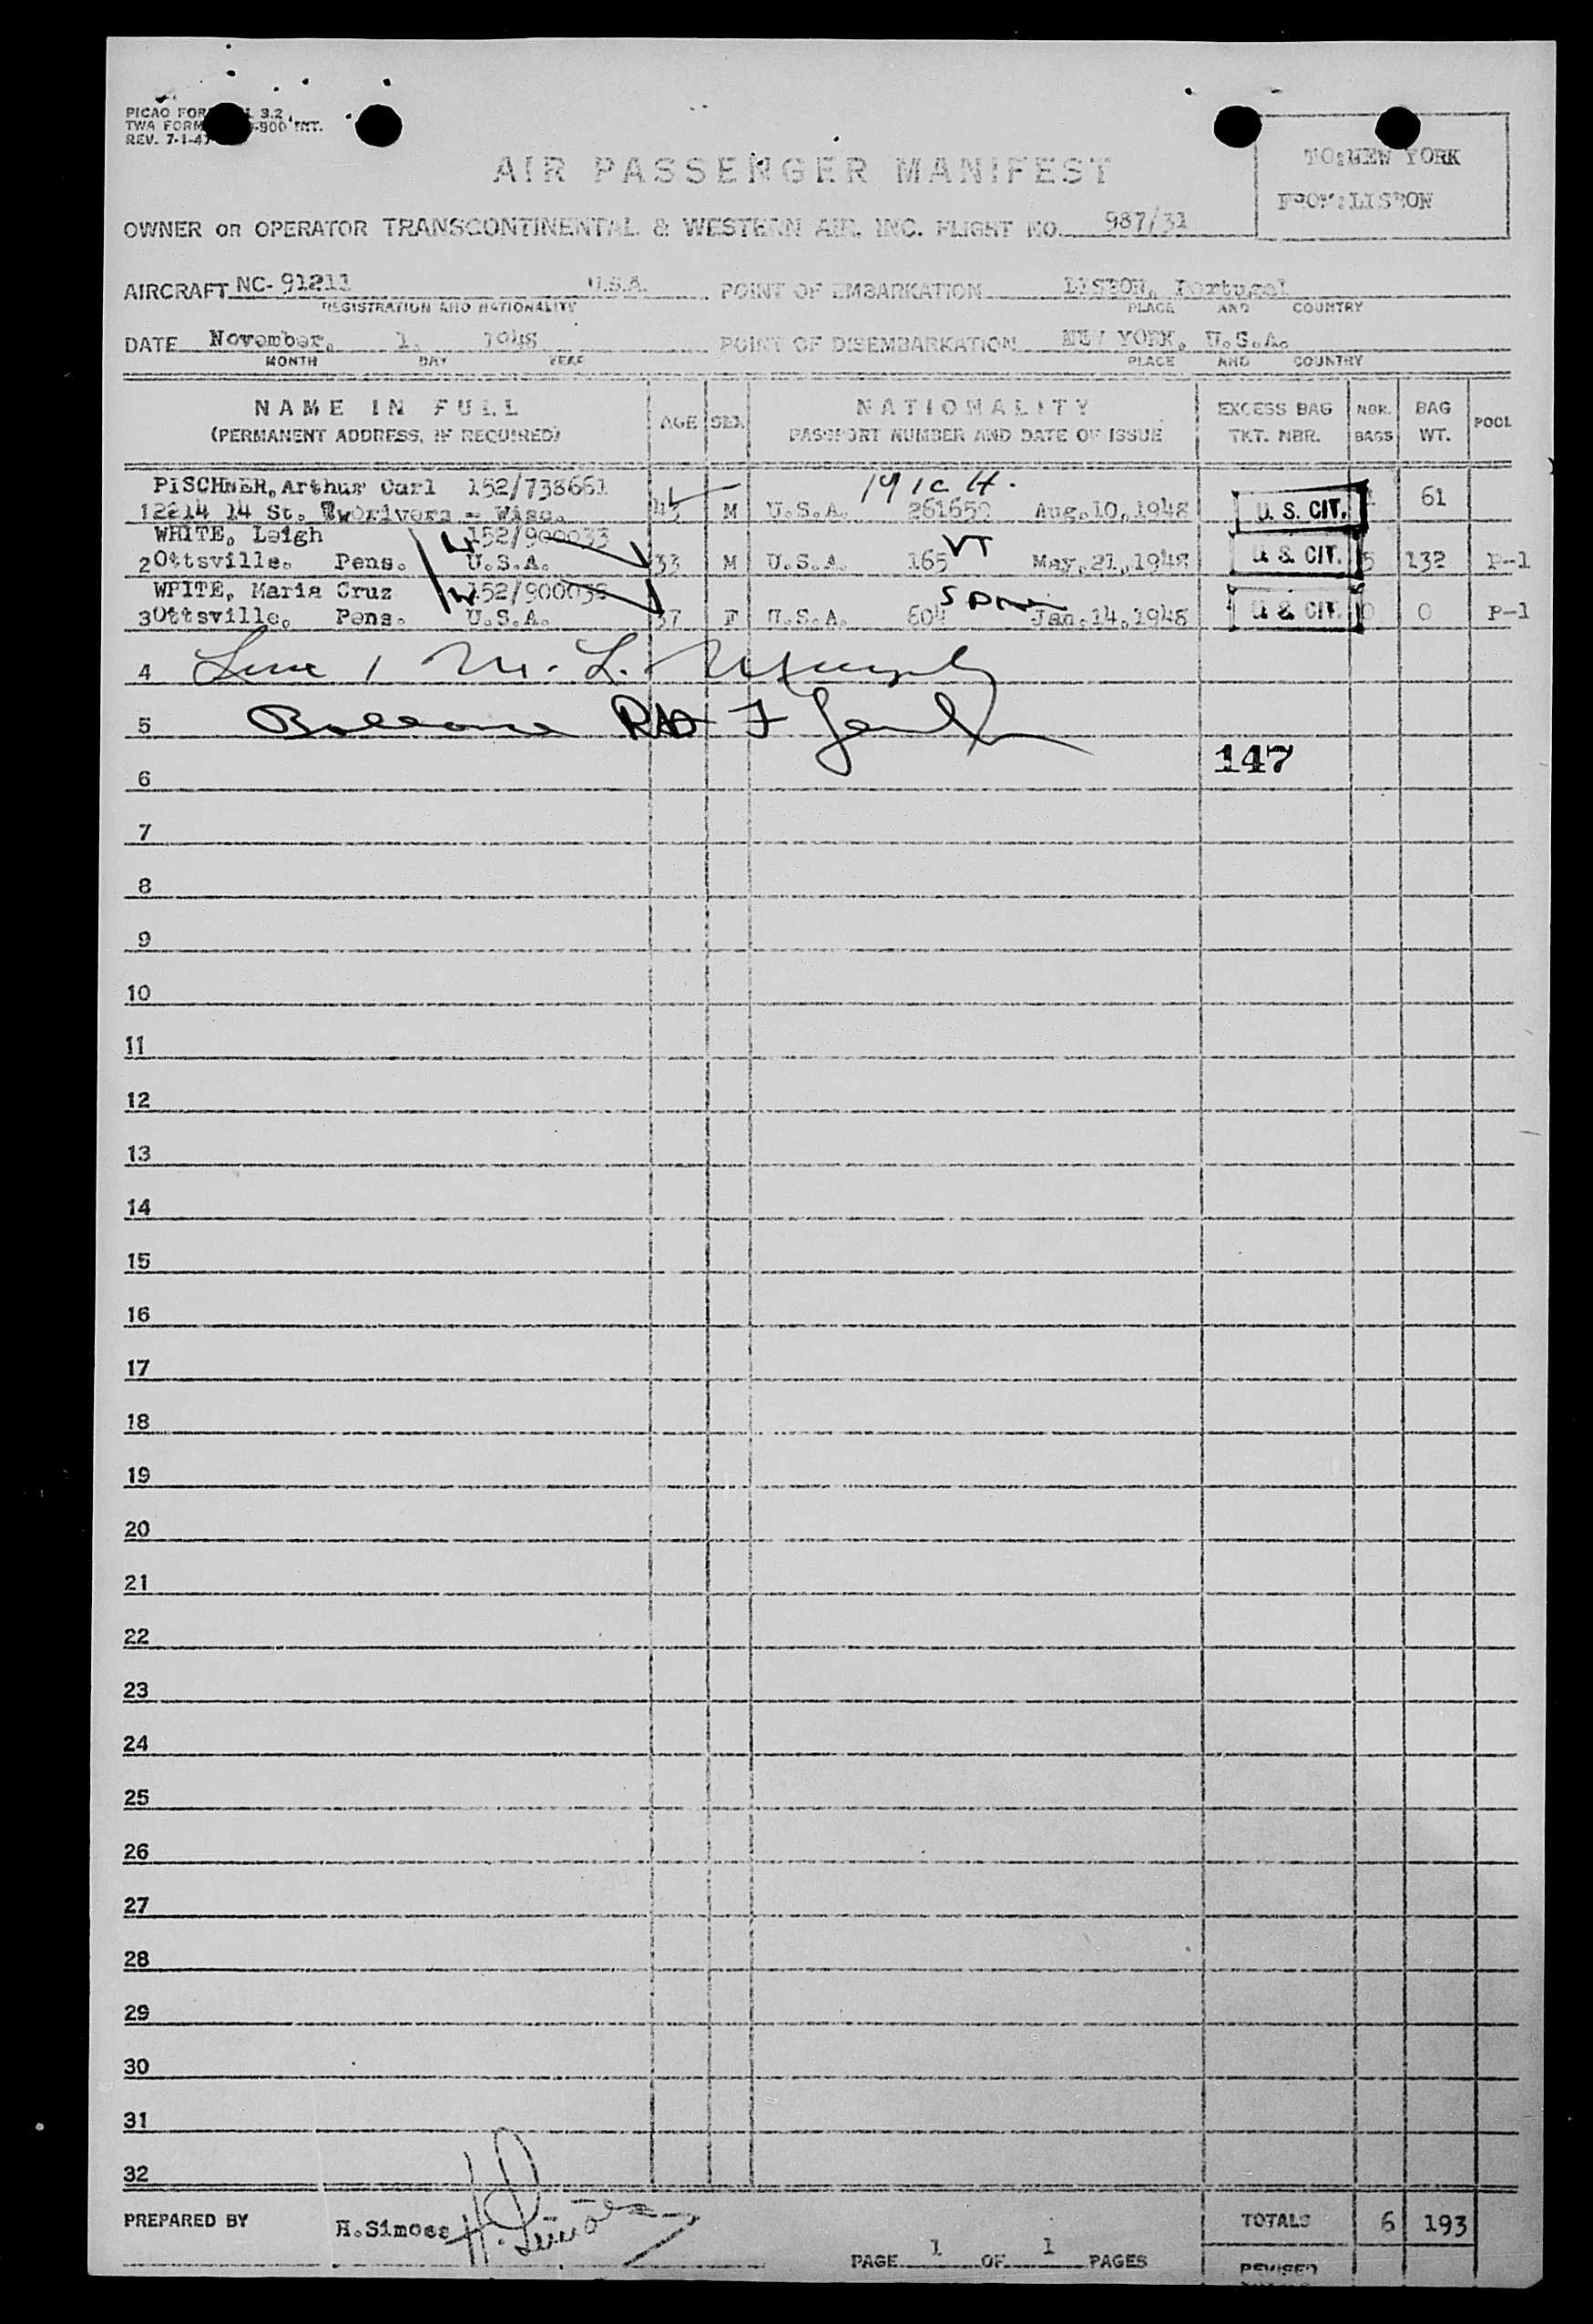 PICAO FOR 3.2
TWA FORM -900 INT.
REV. 7-1-47
TO:NEW YORK
FROM:LISBON
AIR PASSENGER MANIFEST
OWNER OR OPERATOR TRANSCONTINENTAL & WESTERN AIR, INC. FLIGHT NO. 987/31
AIRCRAFT NC-91211 U.S.A. POINT OF EMBARKATION LISBON, Portugal
REGISTRATION AND NATIONALITY PLACE AND COUNTRY
DATE November, 1, 1948 POINT OF DISEMBARKATION NEW YORK, U.S.A.
MONTH DAY YEAR PLACE AND COUNTRY
NAME IN FULL AGE SEX NATIONALITY EXCESS BAG NBR. BAG POOL
(PERMANENT ADDRESS, IF REQUIRED) PASSPORT NUMBER AND DATE OF ISSUE TKT. NBR. BAGS WT.
PISCHNER, Arthur Carl 152/738661 Mich.
1 2214 14 St. Tworivers - Wisc. M U.S.A. 261659 Aug.10,1948 U. S. CIT. 61
WHITE, Leigh 152/900033 VT
2 Ottsville. Pens. U.S.A. 33 M U.S.A. 165 May,21,1948 U. S. CIT. 5 132 P-1
WPITE, Maria Cruz Spain
3 Ottsville, Pens. U.S.A. 37 F U.S.A. 604 Jan.14,1948 U. S. CIT. 0 0 P-1
4 Line 1 M. L. Murphy
5 Balance
6 147
7
8
9
10
11
12
13
14
15
16
17
18
19
20
21
22
23
24
25
26
27
28
29
30
31
32
PREPARED BY H.Simoes H. Simões TOTALS 6 193
PAGE 1 OF 1 PAGES REVISED